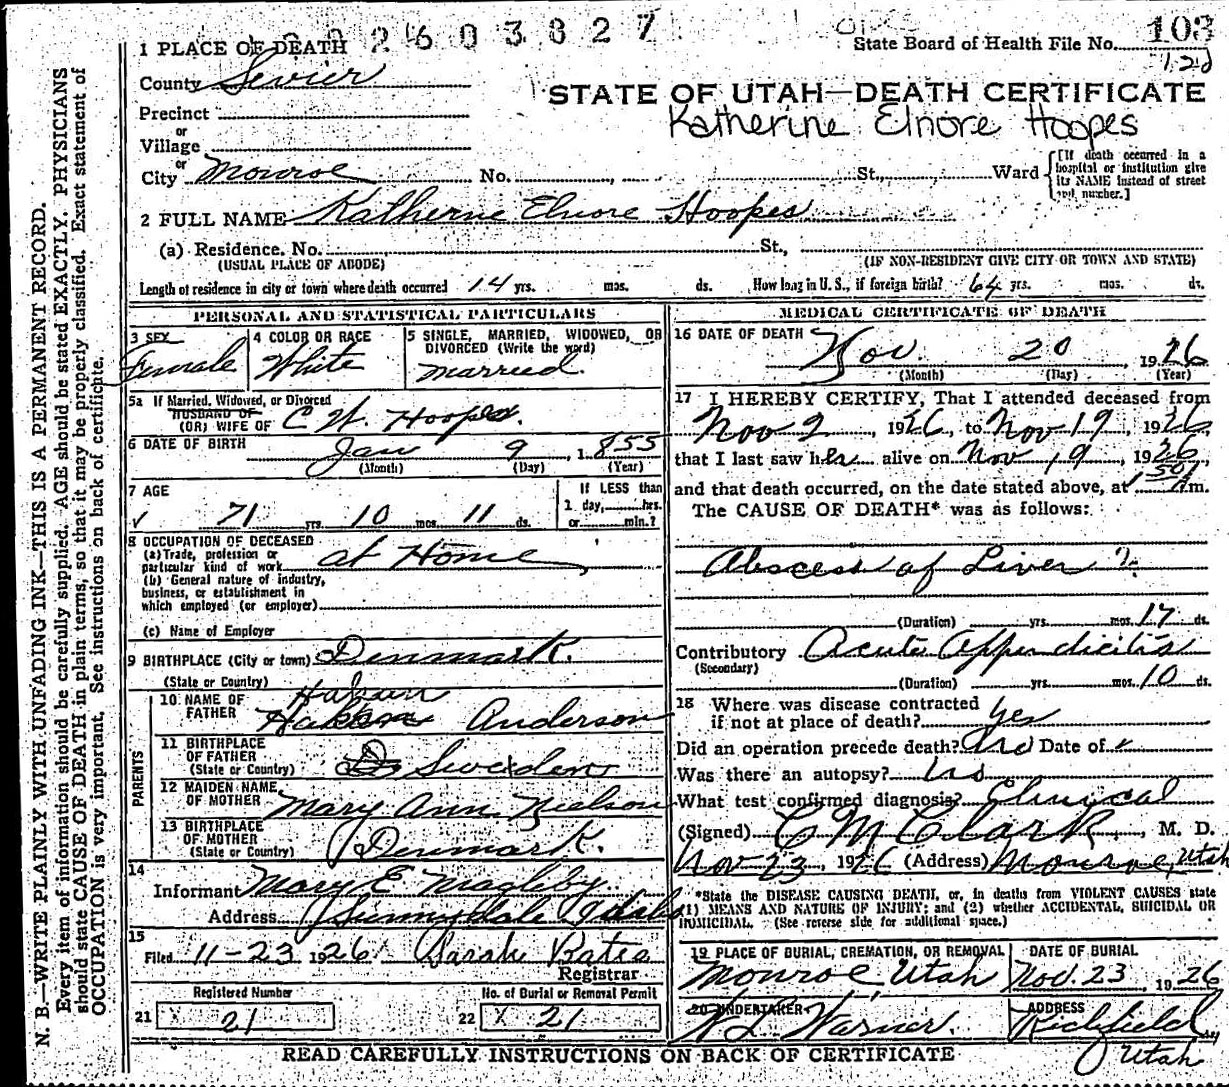 2603827
State Board of Health File No. 103
122
1 PLACE OF DEATH
County Sevier
STATE OF UTAH—DEATH CERTIFICATE
Katherine Elnore Hoopes
Precinct
or
Village
or
City Monroe No. , St., Ward
[If death occurred in a hospital or institution give its NAME instead of street and number.]
2 FULL NAME Katherne Elnore Hoopes
(a) Residence. No. St.,
(USUAL PLACE OF ABODE) (IF NON-RESIDENT GIVE CITY OR TOWN AND STATE)
Length of residence in city or town where death occurred 14 yrs. mos. ds. How long in U. S., if foreign birth? 64 yrs. mos. ds.
PERSONAL AND STATISTICAL PARTICULARS
3 SEX
Female
4 COLOR OR RACE
White
5 SINGLE, MARRIED, WIDOWED, OR
DIVORCED (Write the word)
Married
5a If Married, Widowed, or Divorced
HUSBAND OF
(OR) WIFE OF C W. Hoopes.
6 DATE OF BIRTH Jan 9 1855
(Month) (Day) (Year)
7 AGE
71 yrs. 10 mos. 11 ds.
If LESS than
1 day, hrs.
or min.?
8 OCCUPATION OF DECEASED
(a) Trade, profession or
particular kind of work at Home
(b) General nature of industry,
business, or establishment in
which employed (or employer)
(c) Name of Employer
9 BIRTHPLACE (City or town) Denmark.
(State or Country)
PARENTS
10 NAME OF
FATHER Hakan Anderson
11 BIRTHPLACE
OF FATHER
(State or Country) Sweden
12 MAIDEN NAME
OF MOTHER Mary Ann Nielson
13 BIRTHPLACE
OF MOTHER
(State or Country) Denmark.
14
Informant Mary E Magleby
Address Sunnydale Idaho
15
Filed 11-23 1926 Sarah Bates
Registrar
Registered Number
21 X 21
No. of Burial or Removal Permit
22 X 21
MEDICAL CERTIFICATE OF DEATH
16 DATE OF DEATH Nov. 20, 1926
(Month) (Day) (Year)
17 I HEREBY CERTIFY, That I attended deceased from
Nov 2, 1926, to Nov 19, 1926,
that I last saw her alive on Nov 19, 1926
and that death occurred, on the date stated above, at 1 50 A m.
The CAUSE OF DEATH* was as follows:
Abscess of Liver ?
(Duration) yrs. mos. 17 ds.
Contributory Acute Appendicitis
(Secondary)
(Duration) yrs. mos. 10 ds.
18 Where was disease contracted
if not at place of death? yes
Did an operation precede death? no Date of x
Was there an autopsy? no
What test confirmed diagnosis? Clinycal
(Signed) C M Clark, M. D.
Nov 23, 1926 (Address) Monroe, Utah
*State the DISEASE CAUSING DEATH, or, in deaths from VIOLENT CAUSES state
(1) MEANS AND NATURE OF INJURY; and (2) whether ACCIDENTAL, SUICIDAL OR
HOMICIDAL. (See reverse side for additional space.)
19 PLACE OF BURIAL, CREMATION, OR REMOVAL
Monroe Utah
DATE OF BURIAL
Nov. 23, 1926
20 UNDERTAKER
N L Warner.
ADDRESS
Richfield
Utah
READ CAREFULLY INSTRUCTIONS ON BACK OF CERTIFICATE
N. B.—WRITE PLAINLY WITH UNFADING INK—THIS IS A PERMANENT RECORD.
Every item of information should be carefully supplied. AGE should be stated EXACTLY. PHYSICIANS
should state CAUSE OF DEATH in plain terms, so that it may be properly classified. Exact statement of
OCCUPATION is very important. See instructions on back of certificate.